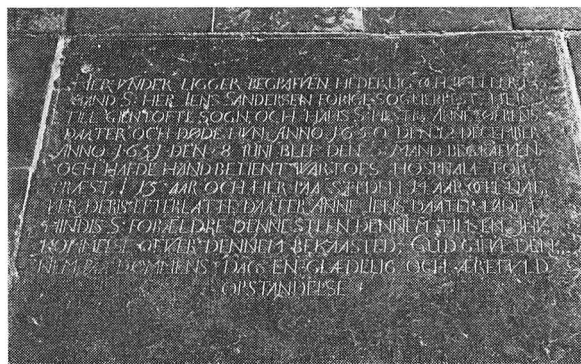 HER VNDER LIGGER BEGRAFVEN HEDERLIG OCH VELLERD
MAND S. HER IENS SANDERSEN FORIGE SOGNEPREST HER
TILL GENTOFTE SOGN OCH HANS HUSTRU ANNE SØFRENS
DAATER OCH DØDE HUN ANNO 1650 DEN 12 DECEMBER
ANNO 1651 DEN 8 IUNI BLEF DEN S. MAND BEGRAFVEN
OCH HAFDE HAND BETIENT WARTOES HOSPITAL FOR
PRÆST I 13 AAR OCH HER PAA STEDEN 14 AAR OCH
HER DERIS EFTERLATTE DAATER ANNE IENS DAATER LADET
MINDIS S. FORÆLDRE DENNE STEEN DENNEM TIL EN
KOMMELSE OFVER DENNEM BEKAASTED. GUD GIEVE DEN
NEM PAA DOMMENS DAG EN GLÆDELIG OCH ÆREFULD
OPSTANDELSE